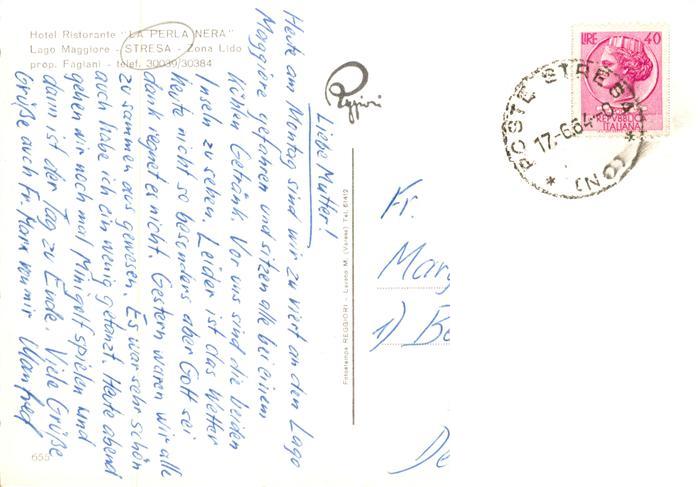 Hotel Ristorante "LA PERLA NERA"
Lago Maggiore - STRESA - Zona Lido
prop. Fagiani - telef. 30039/30384
Reggiori
Liebe Mutter!
Heute am Montag sind wir zu viert an den Lago
Maggiore gefahren und sitzen alle bei einem
kühlen Getränk. Vor uns sind die beiden
Inseln zu sehen. Leider ist das Wetter
heute nicht so besonders aber Gott sei
dank regnet es nicht. Gestern waren wir alle
zusammen aus gewesen. Es war sehr schön
auch habe ich ein wenig getanzt. Heute abend
gehen wir noch mal Minigolf spielen und
dann ist der Tag zu Ende. Viele Grüße
Grüße auch Fr. von mir Manfred
655
Fotostampa REGGIORI - Laveno M. (Varese) Tel. 61412
LIRE 40
REPVBBLICA
ITALIANA
POSTE STRESA (NO)
17.-6.64.-
Fr.
Marg
1) Be
De